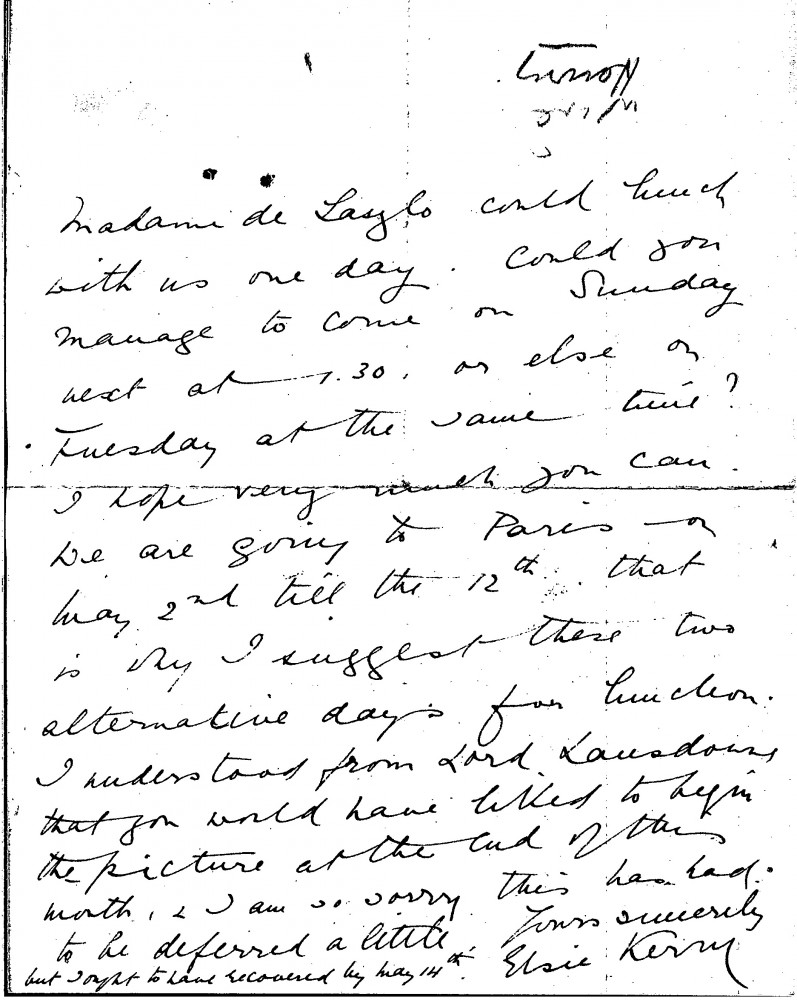 Madame de Laszlo could lunch
with us one day. Could you
manage to come on Sunday
next at 1.30, or else on
Tuesday at the same time?
I hope very much you can.
We are going to Paris on
May 2nd till the 12th. that
is why I suggest these two
alternative days for luncheon.
I understood from Lord Lansdowne
that you would have liked to begin
the picture at the end of this
month, & I am so sorry this has had
to be deferred a little.
but I ought to have recovered by May 14th.
Yours sincerely
Elsie Kerry